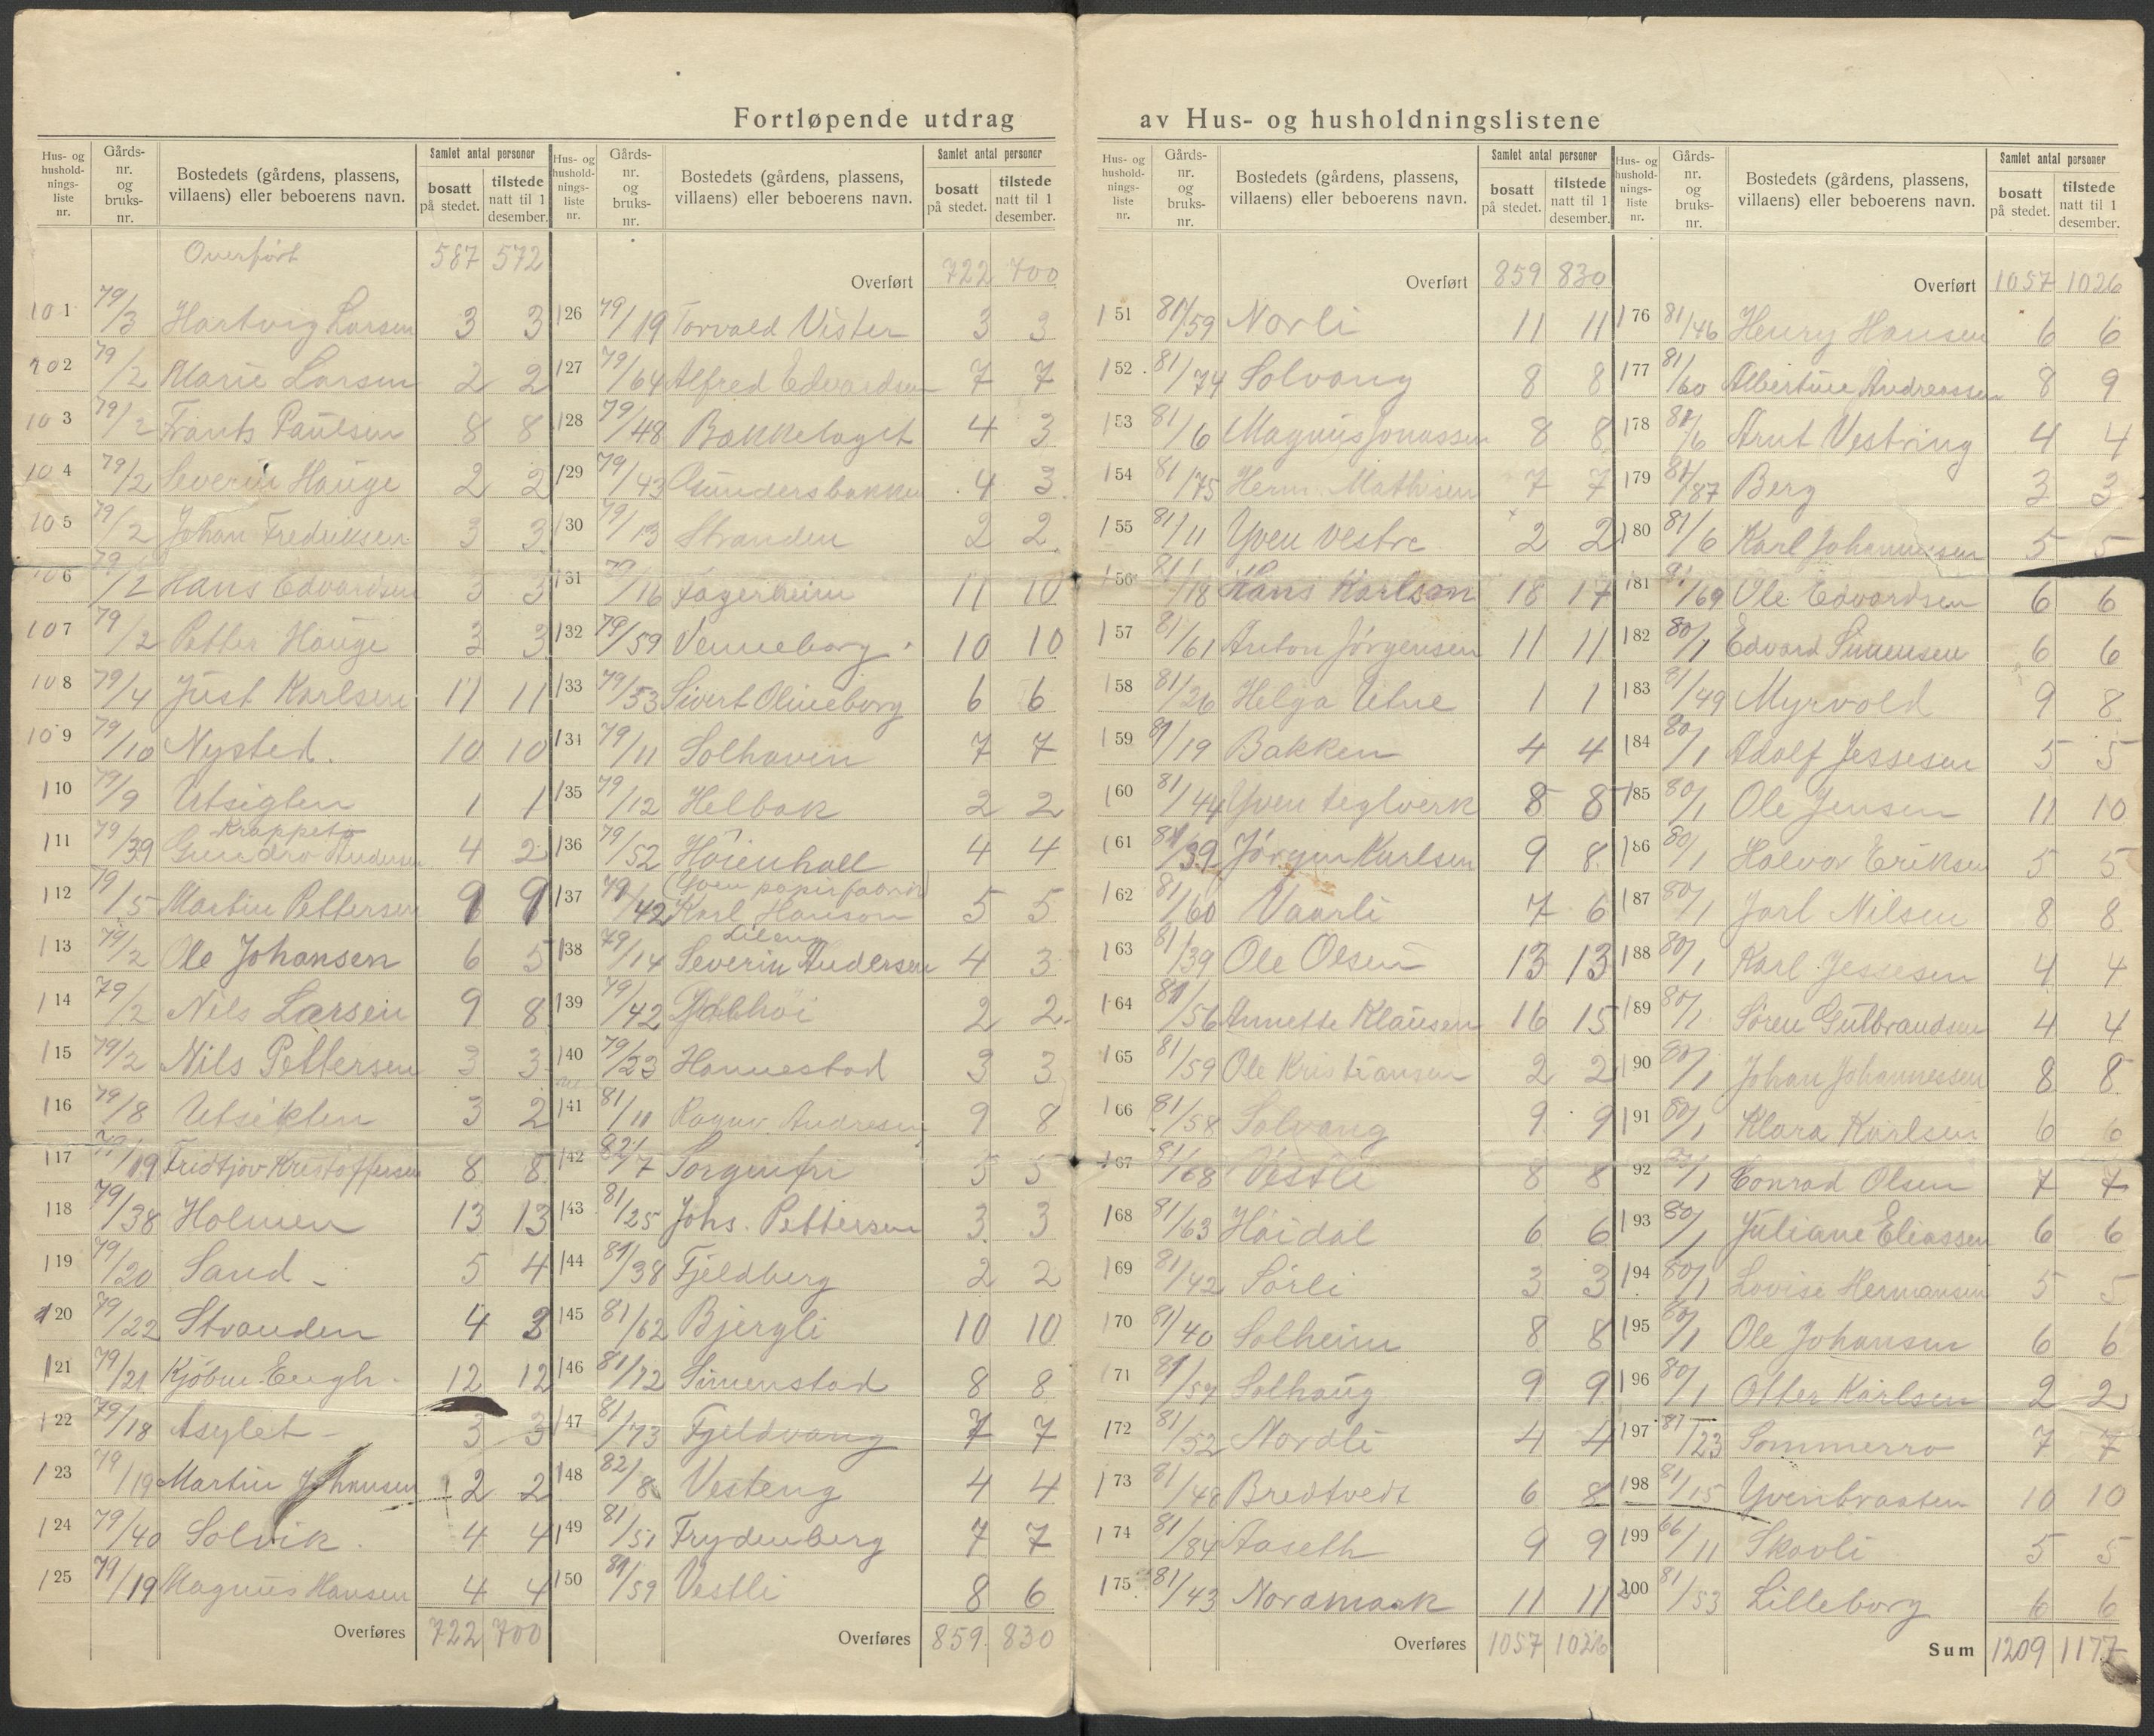 Fortløpende utdrag av Hus- og husholdningslistene
Hus- og hushold-nings-liste nr. Gårds-nr. og bruks-nr. Bostedets (gårdens, plassens, villaens) eller beboerens navn. Samlet antal personer bosatt på stedet. tilstede natt til 1 desember.
Overført 587 572
101 79/3 Hartvig Larsen 3 3
102 79/2 Marie Larsen 2 2
103 79/2 Frants Paulsen 8 8
104 79/2 Severin Hauge 2 2
105 79/2 Johan Fredriksen 3 3
106 79/2 Hans Edvardsen 3 3
107 79/2 Petter Hauge 3 3
108 79/4 Just Karlsen 11 11
109 79/10 Nysted. 10 10
110 79/9 Utsigten 1 1
111 79/39 Krappeto Gundro Andersen 4 2
112 79/5 Martin Pettersen 9 9
113 79/2 Ole Johansen 6 5
114 79/2 Nils Larsen 9 8
115 79/2 Nils Pettersen 3 3
116 79/8 Utsikten 3 2
117 79/19 Fridtjov Kristoffersen 8 8
118 79/38 Holmen 13 13
119 79/20 Sand 5 4
120 79/22 Stranden 4 3
121 79/21 Kjøbm. Engh. 12 12
122 79/18 Asylet 3 3
123 79/19 Martin Johansen 2 2
124 79/40 Solvik. 4 4
125 79/19 Magnus Hansen 4 4
Overføres 722 700
Hus- og hushold-nings-liste nr. Gårds-nr. og bruks-nr. Bostedets (gårdens, plassens, villaens) eller beboerens navn. Samlet antal personer bosatt på stedet. tilstede natt til 1 desember.
Overført 722 700
126 79/19 Torvald Vister 3 3
127 79/64 Alfred Edvardsen 7 7
128 79/48 Bakkelaget 4 3
129 79/43 Gundersbakken 4 3
130 79/13 Stranden 2 2
131 79/16 Fagerheim 11 10
132 79/59 Venneborg 10 10
133 79/53 Sivert Olineborg 6 6
134 79/11 Solhaven 7 7
135 79/12 Helbak 2 2
136 79/52 Høienhall 4 4
137 79/42 (Yven papirfabrik) Karl Hanson 5 5
138 79/14 Lileng Severin Andersen 4 3
139 79/42 2 2
140 79/23 Hannestad 3 3
141 81/11 Ragnv. Andresen 9 8
142 82/7 Sorgenfri 5 5
143 81/25 Johs. Pettersen 3 3
144 81/38 Fjeldberg 2 2
145 81/62 Bjergli 10 10
146 81/72 Simenstad 8 8
147 81/73 Fjeldvang 7 7
148 82/8 Vesteng 4 4
149 81/51 Frydenberg 7 7
150 81/59 Vestli 8 6
Overføres 859 830
Hus- og hushold-nings-liste nr. Gårds-nr. og bruks-nr. Bostedets (gårdens, plassens, villaens) eller beboerens navn. Samlet antal personer bosatt på stedet. tilstede natt til 1 desember.
Overført 859 830
151 81/59 Norli 11 11
152 81/74 Solvang 8 8
153 81/6 Magnus Jonassen 8 8
154 81/75 Herm. Mathisen 7 7
155 81/11 Yven vestre 2 2
156 81/18 Hans Karlsen 18 17
157 81/61 Anton Jörgensen 11 11
158 81/26 Helga Utne 1 1
159 81/19 Bakken 4 4
160 81/44 Yven teglverk 8 8
161 81/39 Jörgen Karlsen 9 8
162 81/60 Vaarli 7 6
163 81/39 Ole Olsen 13 13
164 81/56 Annette Klausen 16 15
165 81/59 Ole Kristiansen 2 2
166 81/58 Solvang 9 9
167 81/68 Vestli 8 8
168 81/63 Høidal 6 6
169 81/42 Sörli 3 3
170 81/40 Solheim 8 8
171 81/57 Solhaug 9 9
172 81/52 Nordli 4 4
173 81/48 Bredtvedt 6 8
174 81/84 Aaseth 9 9
175 81/43 Nordmark 11 11
Overføres 1057 1026
Hus- og hushold-nings-liste nr. Gårds-nr. og bruks-nr. Bostedets (gårdens, plassens, villaens) eller beboerens navn. Samlet antal personer bosatt på stedet. tilstede natt til 1 desember.
Overført 1057 1026
176 81/46 Henry Hansen 6 6
177 81/60 Albertine Andreassen 8 9
178 81/6 Arnt Vestring 4 4
179 81/87 Berg 3 3
180 81/6 Karl Johannesen 5 5
181 81/69 Ole Edvardsen 6 6
182 80/1 Edvard Simensen 6 6
183 81/49 Myrvold 9 8
184 80/1 Adolf Jessesen 5 5
185 80/1 Ole Jensen 11 10
186 80/1 Halvor Eriksen 5 5
187 80/1 Jarl Nilsen 8 8
188 80/1 Karl Jessesen 4 4
189 80/1 Sören Gulbrandsen 4 4
190 80/1 Johan Johannessen 8 8
191 80/1 Klara Karlsen 6 6
192 80/1 Conrad Olsen 7 7
193 80/1 Juliane Eliassen 6 6
194 80/1 Lovise Hermansen 5 5
195 80/1 Ole Johansen 6 6
196 80/1 Otter Karlsen 2 2
197 81/23 Sommerro 7 7
198 81/15 Yvenbraaten 10 10
199 66/11 Skovli 5 5
200 81/53 Lilleborg 6 6
Sum 1209 1177